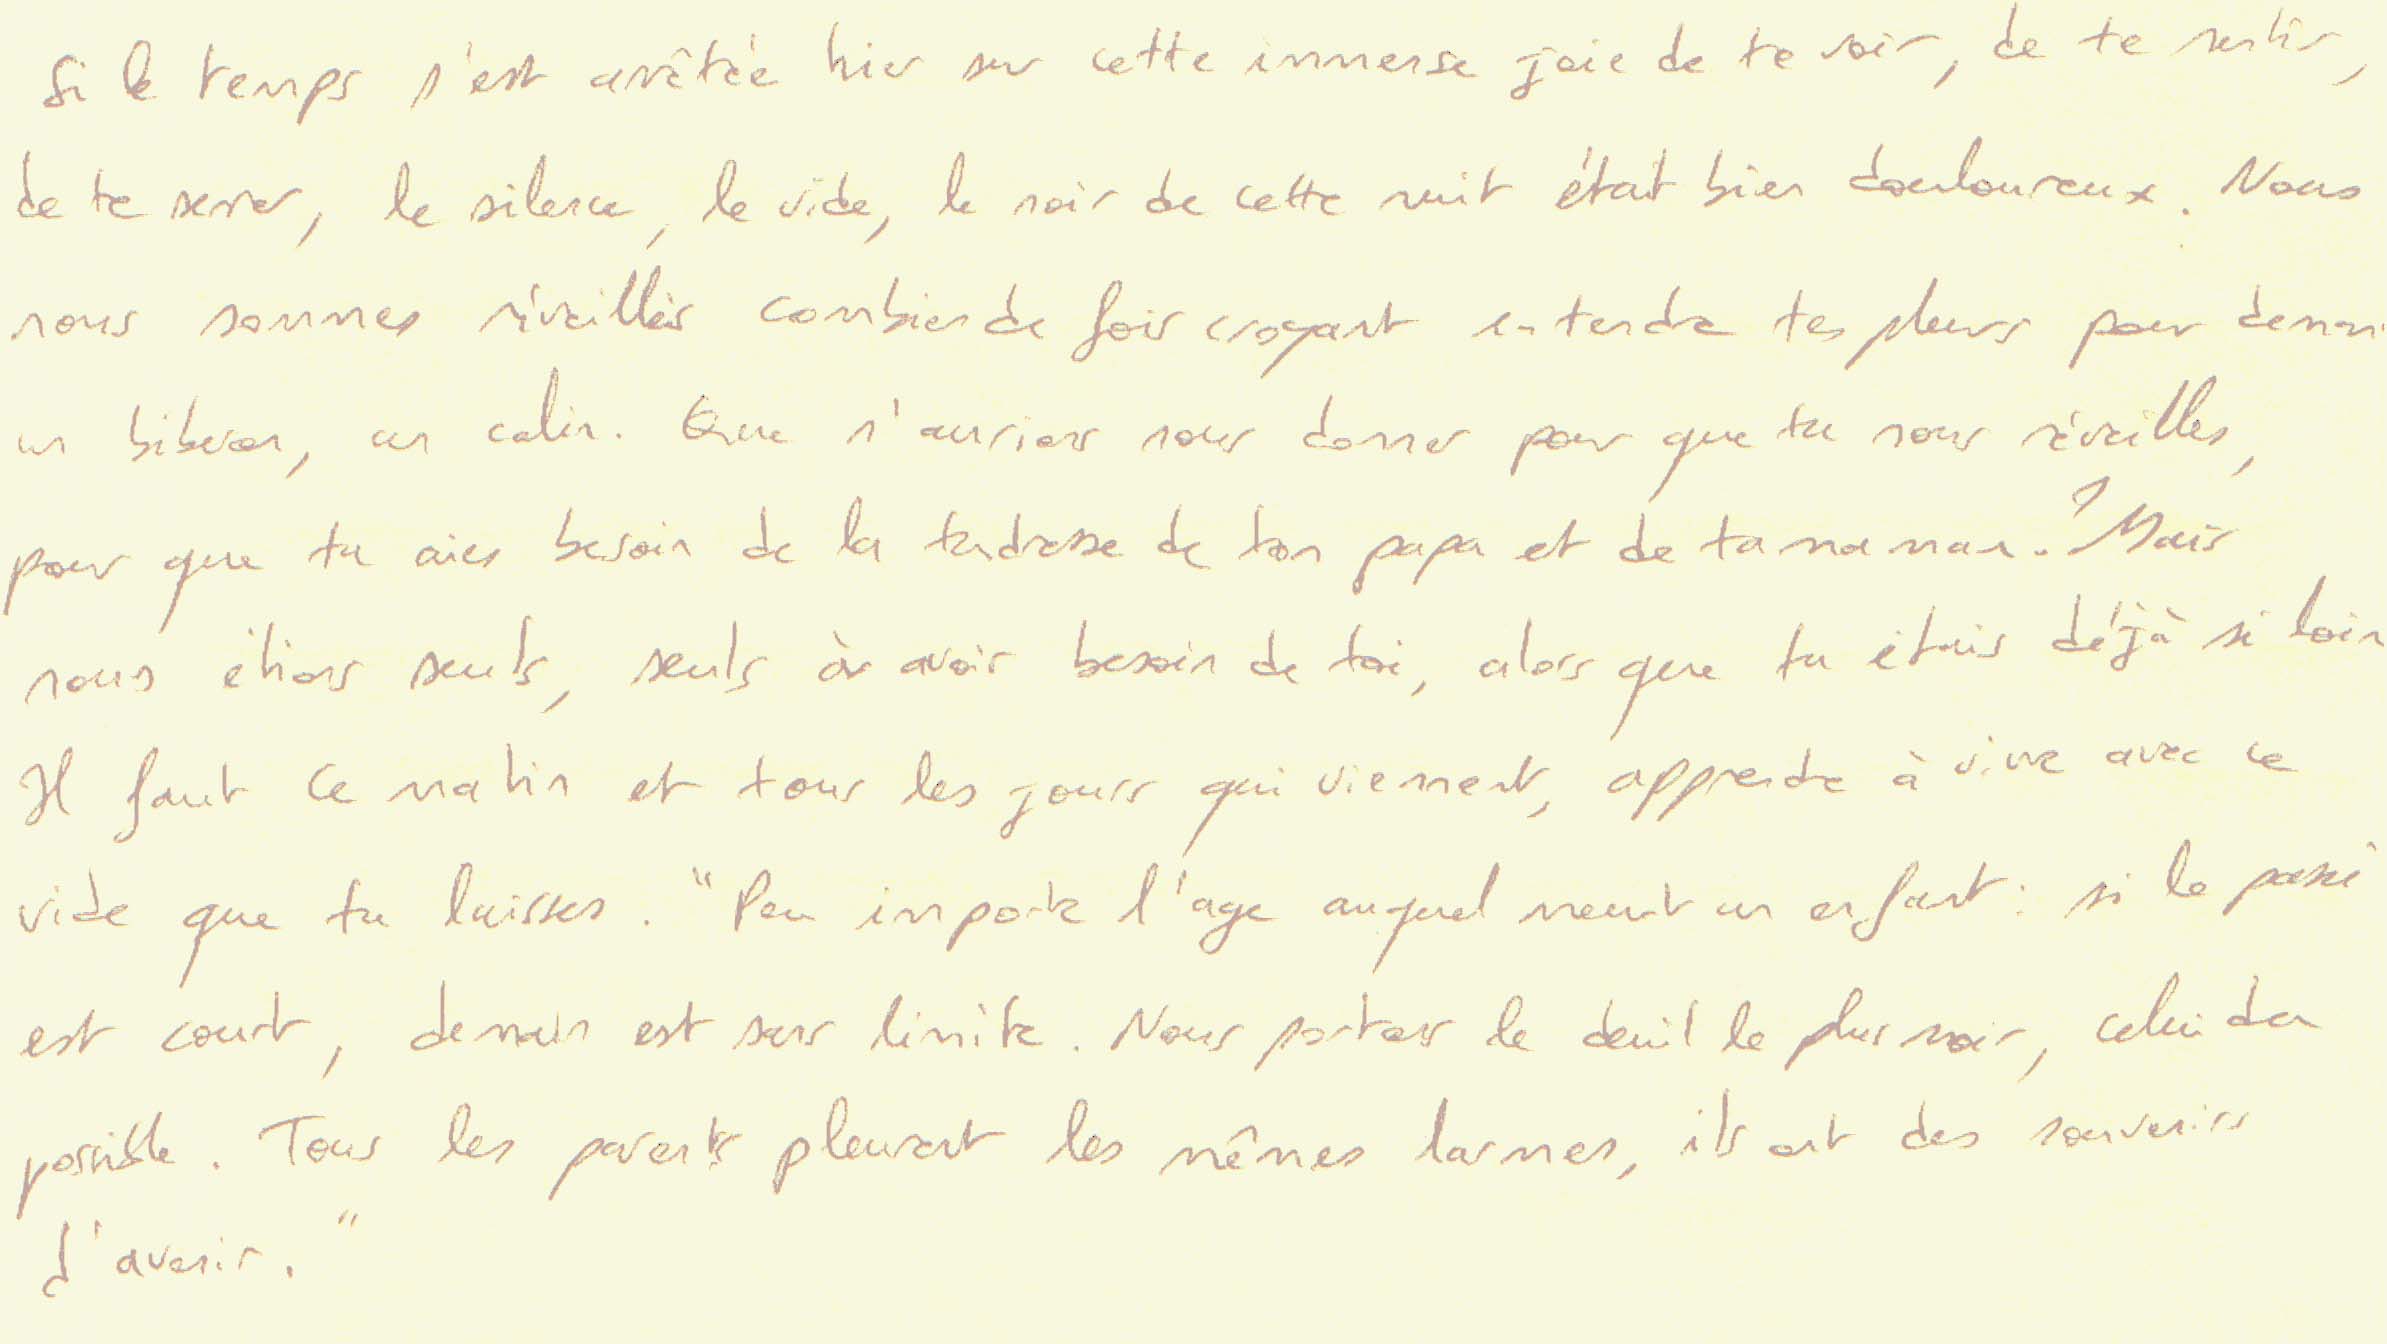 Si le temps s'est arrêtée hier sur cette immense joie de te voir, de te sentir,
de te serrer, le silence, le vide, le noir de cette nuit était bien douloureux. Nous
nous sommes réveillés combien de fois croyant entendre tes pleurs pour
un biberon, un calin. Que n'aurions nous donner pour que tu nous réveilles,
pour que tu aies besoin de la tendresse de ton papa et de ta maman ? Mais
nous étions seuls, seuls à avoir besoin de toi, alors que tu étais déjà si loin
Il faut ce matin et tous les jours qui viennent, apprendre à vivre avec ce
vide que tu laisses. "Peu importe l'age auquel meurt un enfant : si le passé
est court, demain est sans limite. Nous portons le deuil le plus noir, celui du
possible. Tous les parents pleurent les mêmes larmes, ils ont des souvenirs
d'avenir."